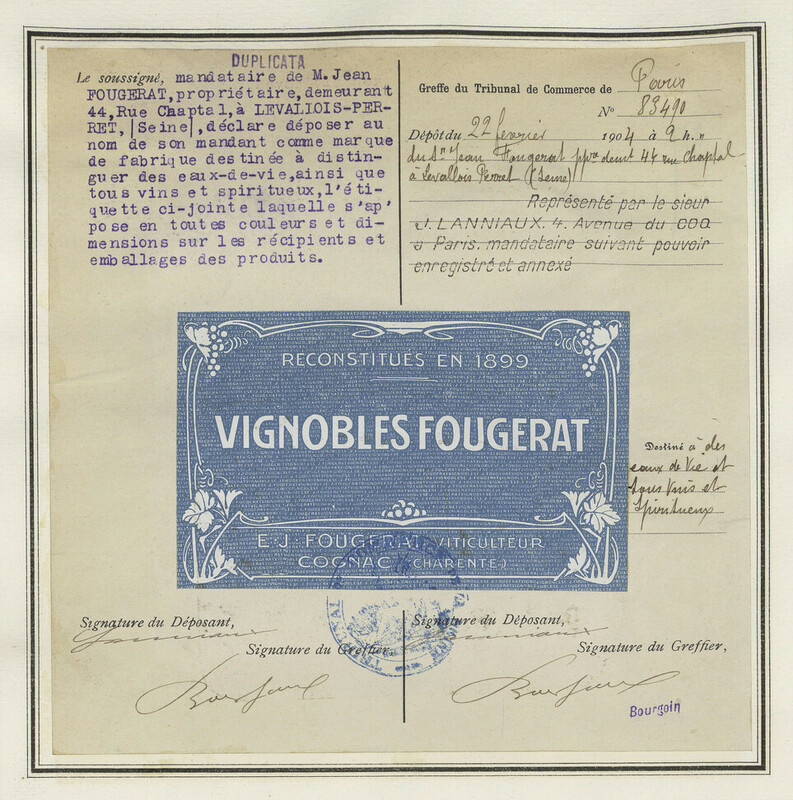 DUPLICATA
Le soussigné, mandataire de M.Jean
FOUGERAT,propriétaire,demeurant
44,Rue Chaptal,à LEVALIOIS-PER-
RET,|Seine|,déclare déposer au
nom de son mandant comme marque
de fabrique destinée à distin-
guer des eaux-de-vie,ainsi que
tous vins et spiritueux,l'éti-
quette ci-jointe laquelle s'ap'
pose en toutes couleurs et di-
mensions sur les récipients et
emballages des produits.
Greffe du Tribunal de Commerce de Paris
No 83490
Dépôt du 22 fevrier 1904 à 2 h. "
du Sr Jean Fougerat ppre demt 44 rue Chaptal
à Levallois Perret (Seine)
Représenté par le sieur
J. LANNIAUX. 4. Avenue du COQ
à Paris. mandataire suivant pouvoir
enregistré et annexé
RECONSTITUÉS EN 1899
VIGNOBLES FOUGERAT
E.J. FOUGERAT, VITICULTEUR
COGNAC (CHARENTE)
Destiné à des
eaux de Vie et
tous Vins et
Spiritueux
Signature du Déposant,
Signature du Greffier,
Signature du Déposant,
Signature du Greffier,
Bourgoin